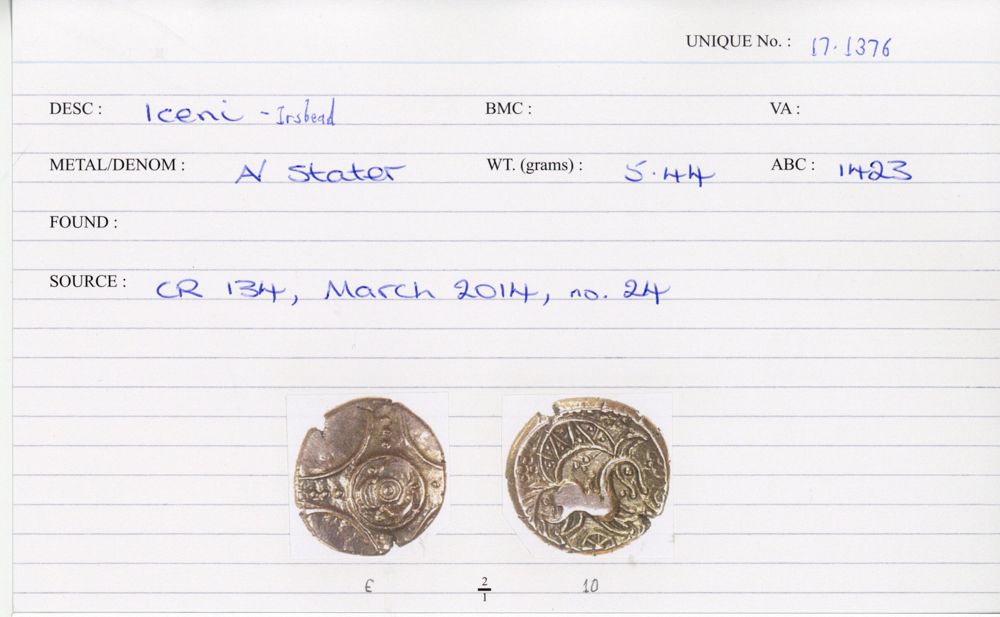 UNIQUE No. : 17.1376
DESC : Iceni - Irsbead BMC : VA :
METAL/DENOM : AV Stater WT. (grams) : 5.44 ABC : 1423
FOUND :
SOURCE : CR 134, March 2014, no. 24
E 2/1 10